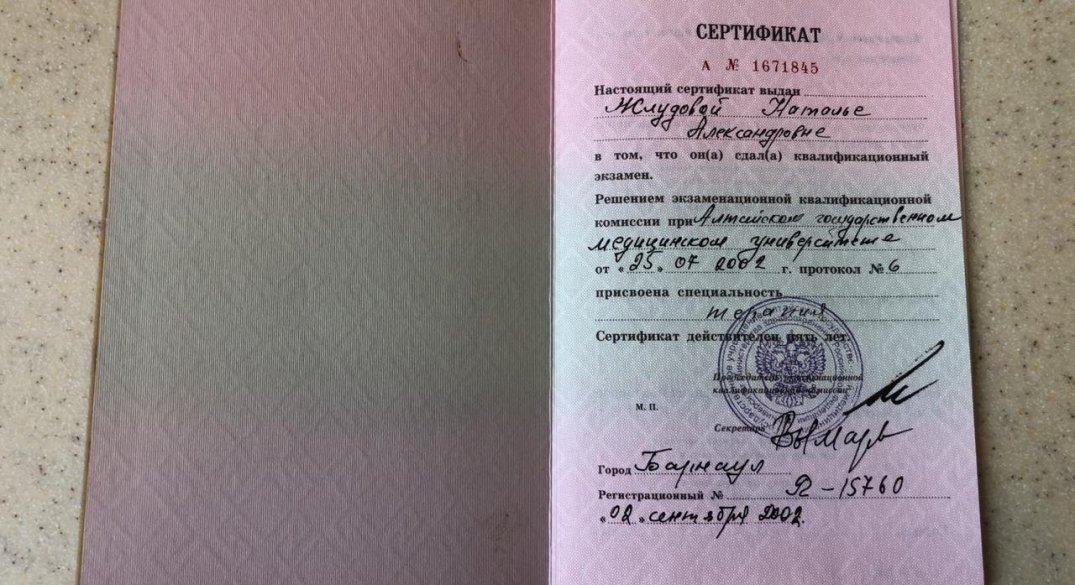 СЕРТИФИКАТ
А № 1671845
Настоящий сертификат выдан
Жлудовой Наталье
Александровне
в том, что он(а) сдал(а) квалификационный
экзамен.
Решением экзаменационной квалификационной
комиссии при Алтайском государственном
медицинском университете
от «25» 07 2002 г. протокол № 6
присвоена специальность
терапия
Сертификат действителен пять лет.
Председатель экзаменационной
квалификационной комиссии
М. П.
Секретарь
Город Барнаул
Регистрационный № -15760
«02» сентября 2002.